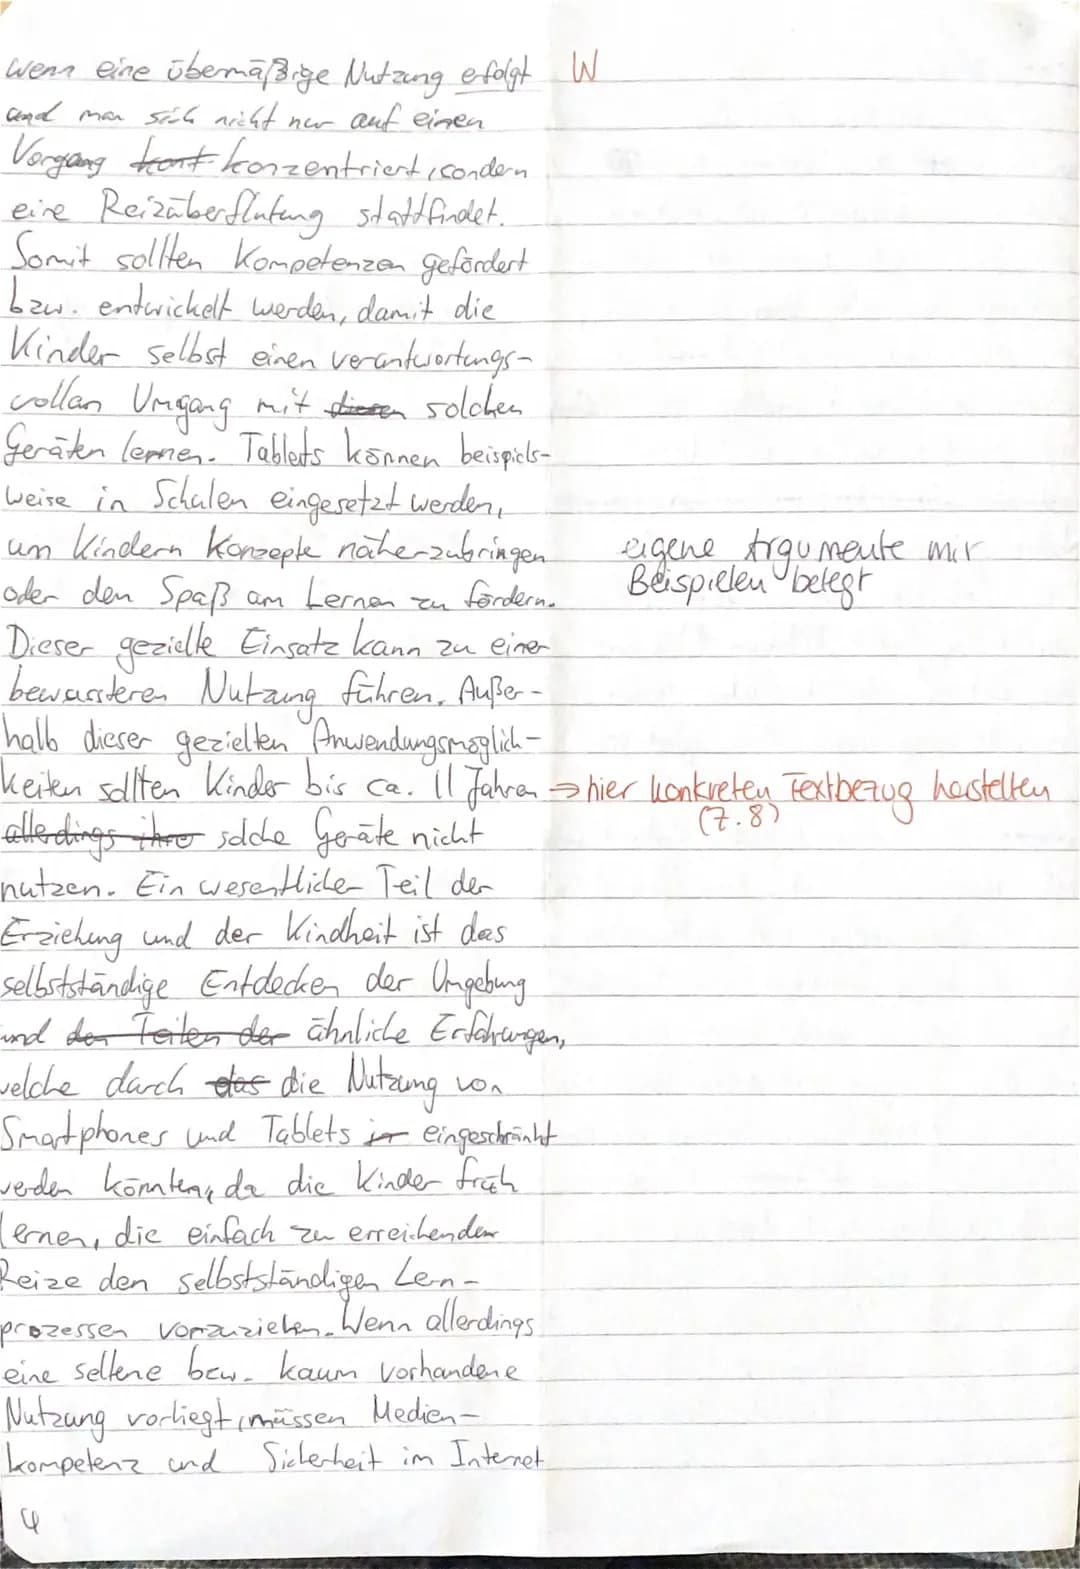 wenn eine übermäßige Nutzung efolgt W
und man sich nicht nur auf einen
Vorgang kont konzentriert, sondern
eine Reizüberflutung stattfindet.
Somit sollten Kompetenzen gefördert
bzw. entwickelt werden, damit die
Kinder selbst einen verantwortungs-
vollen Umgang mit diesen solchen
Geräten lernen. Tablets können beispiels-
weise in Schulen eingesetzt werden,
um Kindern Konzepte näherzubringen
oder den Spaß am Lernen zu fördern.
eigene Argumente mit
Beispielen belegt
Dieser gezielte Einsatz kann zu einer
bewussteren Nutzung führen. Außer-
halb dieser gezielten Anwendungsmöglich-
keiten sollten Kinder bis ca. 11 Jahren → hier konkreten Textbezug herstellen
(Z. 8)
allerdings ihre solche Geräte nicht
nutzen. Ein wesentlicher Teil der
Erziehung und der Kindheit ist das
selbstständige Entdecken der Umgebung
und den Teilen der ähnliche Erfahrungen,
welche durch das die Nutzung von
Smartphones und Tablets in eingeschränkt
werden könnten, da die Kinder früh
lernen, die einfach zu erreichenden
Reize den selbstständigen Lern-
prozessen vorzuziehen. Wenn allerdings
eine seltene bzw. kaum vorhandene
Nutzung vorliegt, müssen Medien-
kompetenz und Sicherheit im Internet
4